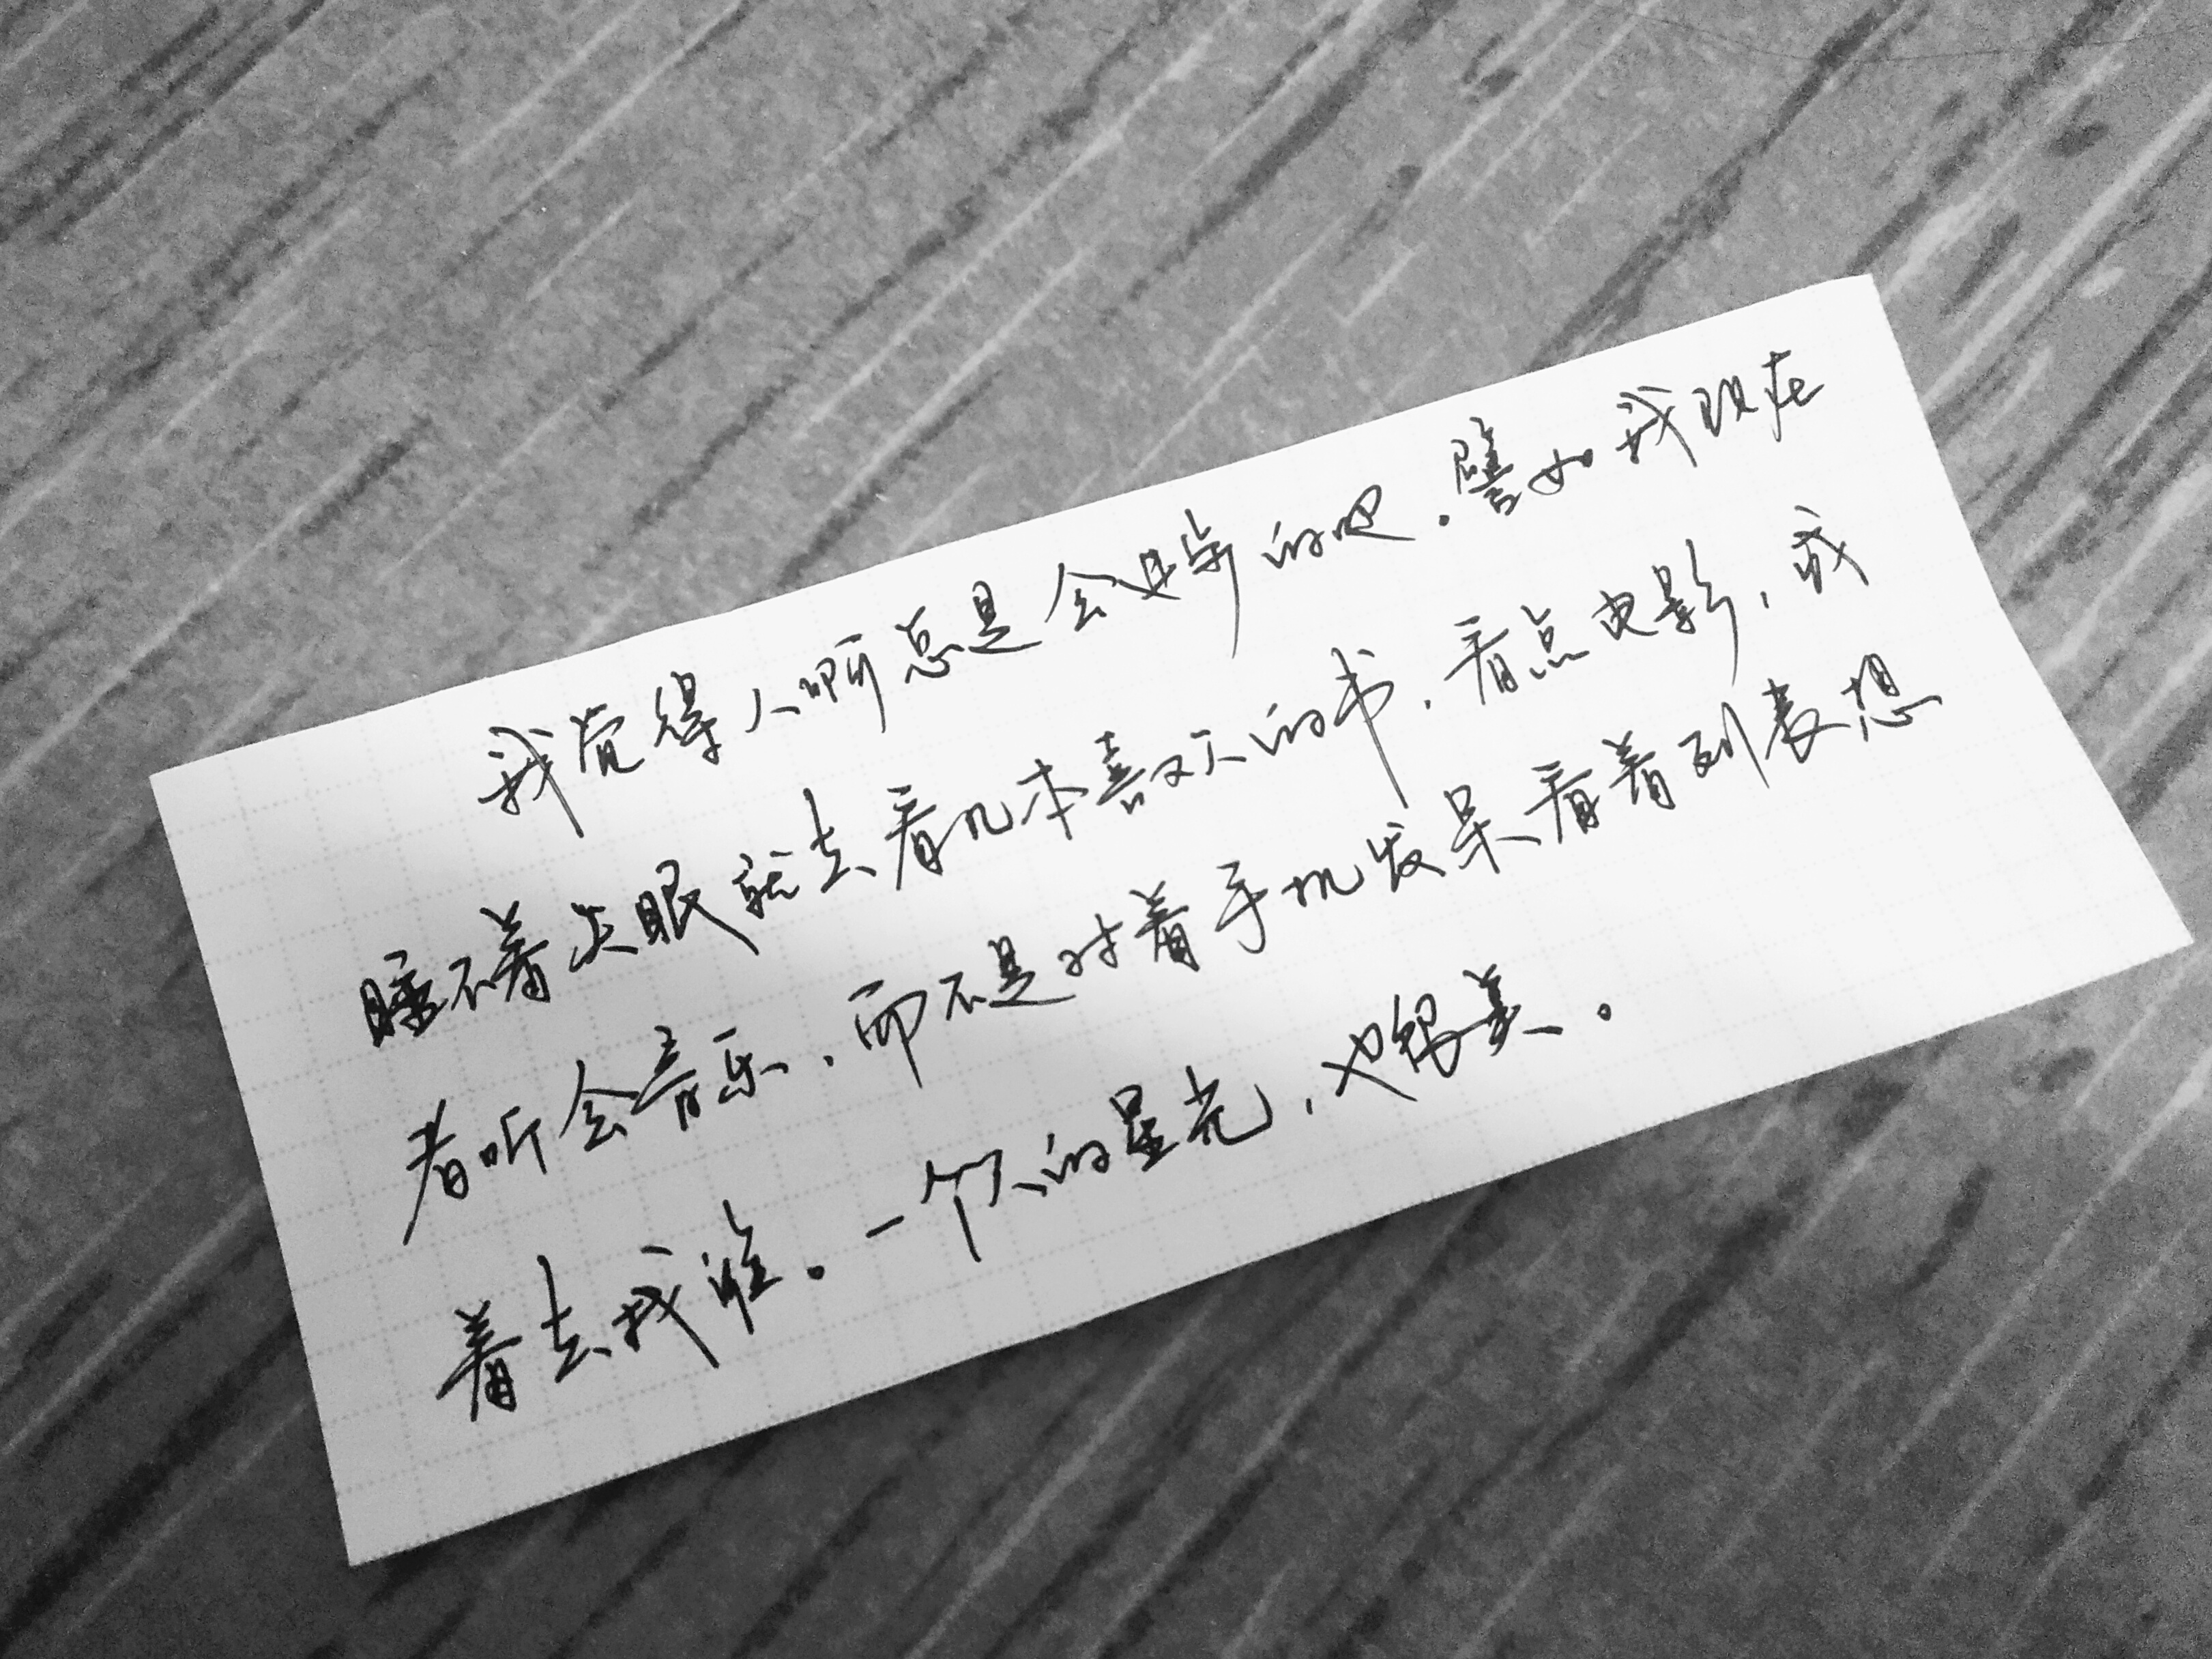 我觉得人啊总是会进步的吧．譬如我现在
睡不着失眠就去看几本喜欢的书．看点电影，或
者听会音乐，而不是对着手机发呆看着列表想
着去找谁。一个人的星光，也很美。